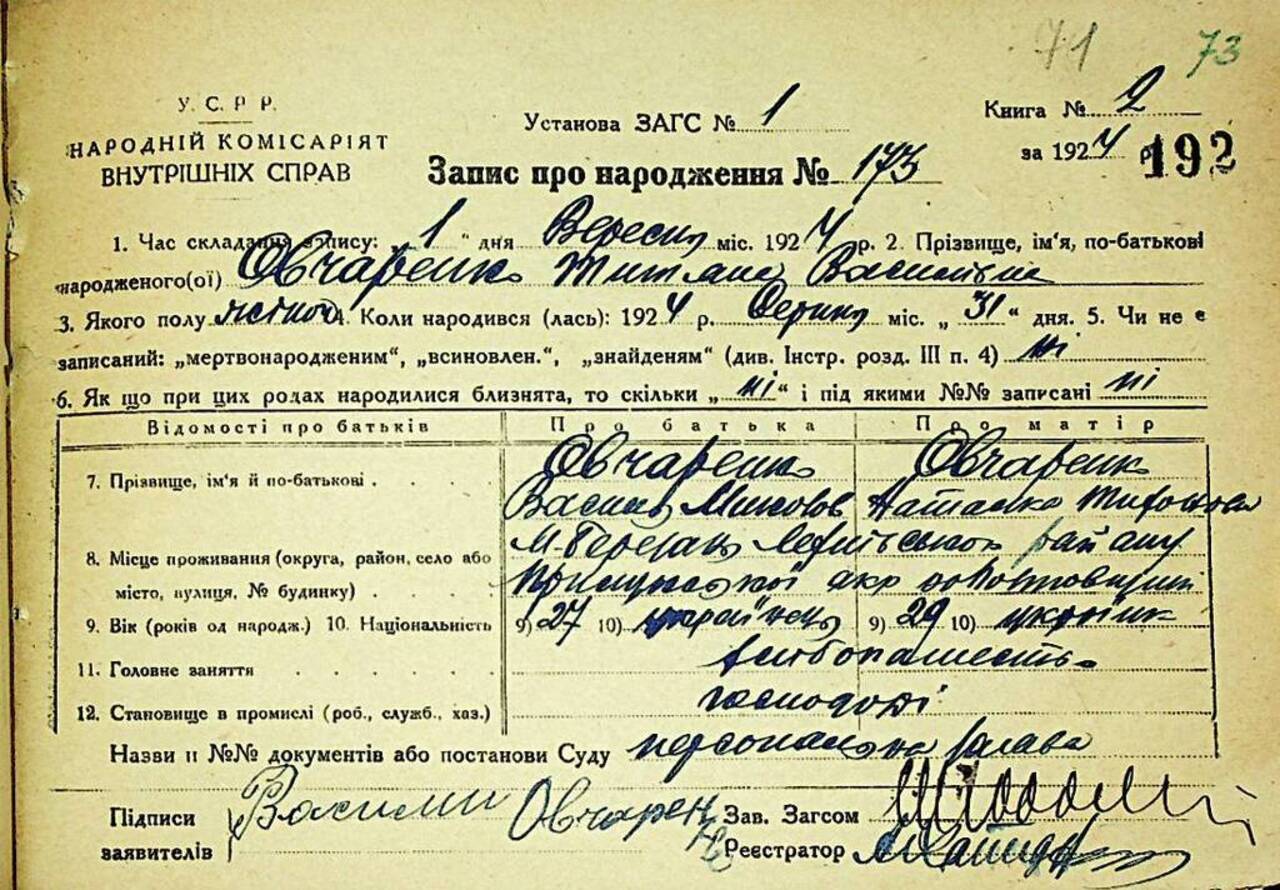 71 73
У. С. Р Р.
НАРОДНІЙ КОМІСАРІЯТ
ВНУТРІШНІХ СПРАВ
Установа ЗАГС № 1
Книга № 2
за 1924 р. 192
Запис про народження № 173
1. Час складання запису: „1“ дня Вересня міс. 1924 р. 2. Прізвище, ім'я, по-батькові
народженого(ої) Овчаренко Титяна Васильївна
3. Якого полу жіночої 4. Коли народився (лась): 1924 р. Серпня міс. „31“ дня. 5. Чи не є
записаний: „мертвонародженим“, „всиновлен.“, „знайденям“ (див. Інстр. розд. III п. 4) ні
6. Як що при цих родах народилися близнята, то скільки „ні“ і під якими №№ записані ні
Відомості про батьків Про батька Про матір
7. Прізвище, ім'я й по-батькові . . . . Овчаренко Овчаренко
Василь Миколов Наталка
8. Місце проживання (округа, район, село або М-Березань району
місто, вулиця, № будинку) . . . . Прилуцької окр
9. Вік (років од народж.) 10. Національність 9) 27 10) українець 9) 29 10) українк
11. Головне заняття . . . . . хлібопашество
12. Становище в промислі (роб., служб., хаз.) господарі
Назви и №№ документів або постанови Суду персональна заява
Підписи Василий Овчарен Зав. Загсом
заявителів ко Реєстратор